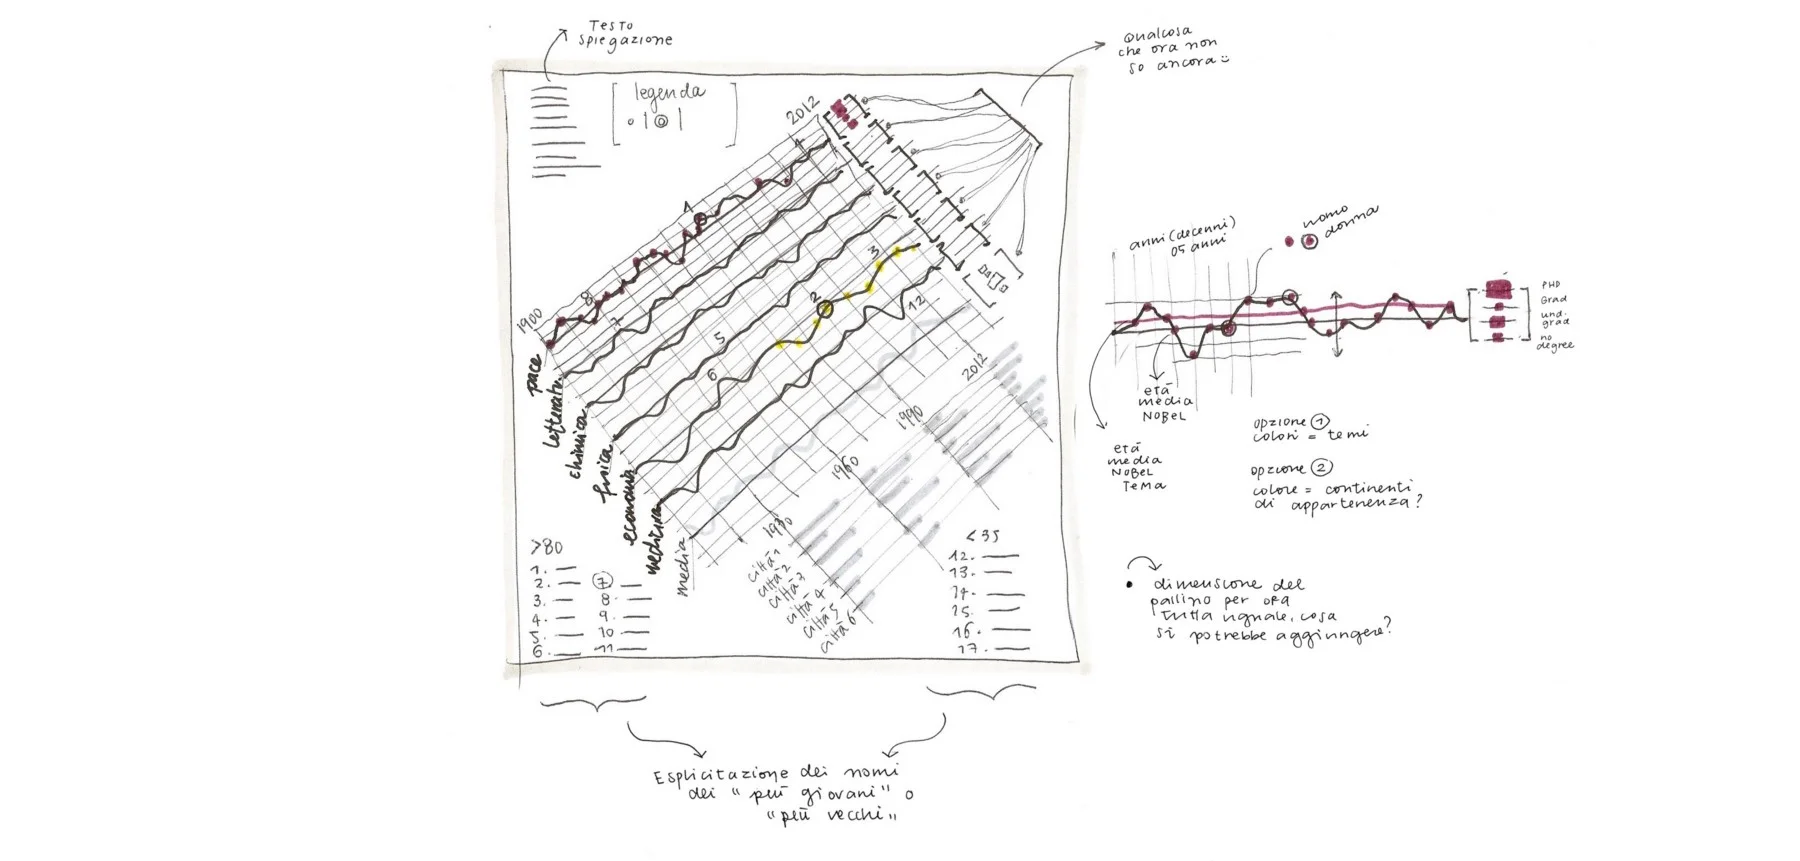 TESTO
spiegazione
Qualcosa
che ora non
so ancora :)
legenda
2012
1900
1
8
7
5
6
2
3
12
pace
letteratura
chimica
fisica
economia
medicina
media
2012
1990
1960
1930
città 1
città 2
città 3
città 4
città 5
città 6
>80
1.
2.
3.
4.
5.
6.
7
8.
9.
10
11.
<35
12.
13.
14.
15.
16.
17.
Esplicitazione dei nomi
dei "più giovani" o
"più vecchi"
anni (decenni)
o 5 anni
uomo
donna
PHD
Grad
und.
grad
no
degree
età
media
NOBEL
età
media
NOBEL
TEMA
opzione 1
colori = temi
opzione 2
colore = continenti
di appartenenza?
dimensione del
pallino per ora
tutta uguale, cosa
si potrebbe aggiungere?